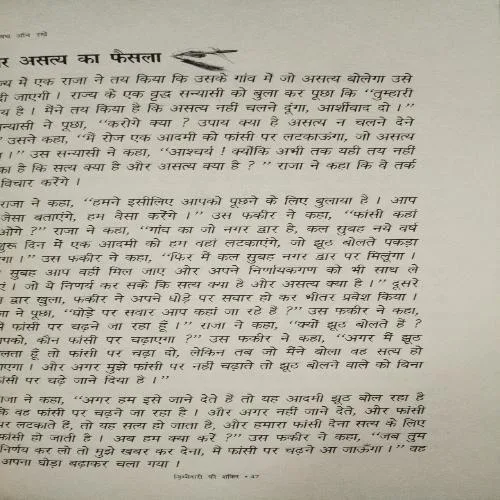 जॉन रखे
असत्य का फैसला
में एक राजा ने तय किया कि उसके गांव में जो असत्य बोलेगा उसे
दी जाएगी । राज्य के एक वृद्ध सन्यासी को बुला कर पूछा कि ‘‘तुम्हारी
है । मैंने तय किया है कि असत्य नहीं चलने दूंगा, आर्शीवाद दो ।’’
ने पूछा, ‘‘करोगे क्या ? उपाय क्या है असत्य न चलने देने
उसने कहा, ‘‘मैं रोज एक आदमी को फांसी पर लटकाऊंगा, जो असत्य
।’’ उस सन्यासी ने कहा, ‘‘आश्चर्य ! क्योंकि अभी तक यही तय नहीं
है कि सत्य क्या है और असत्य क्या है ? ’’ राजा ने कहा कि वे तर्क
विचार करेंगे ।
राजा ने कहा, ‘‘हमने इसीलिए आपको पूछने के लिए बुलाया है । आप
जैसा बताएंगे, हम वैसा करेंगे ।’’ उस फकीर ने कहा, ‘‘फांसी कहां
राजा ने कहा, ‘‘गांव का जो नगर द्वार है, कल सुबह नये वर्ष
शुरू दिन में एक आदमी को हम वहां लटकाएंगे, जो झूठ बोलते पकड़ा
।’’ उस फकीर ने कहा, ‘‘फिर मैं कल सुबह नगर द्वार पर मिलूंगा ।
सुबह आप वहीं मिल जाए और अपने निर्णायकगण को भी साथ ले
। जो ये निर्णय कर सकें कि सत्य क्या है और असत्य क्या है ।’’ दूसरे
द्वार खुला, फकीर ने अपने घोड़े पर सवार हो कर भीतर प्रवेश किया ।
ने पूछा, ‘‘घोड़े पर सवार आप कहां जा रहे हैं ?’’ उस फकीर ने कहा,
फांसी पर चढ़ने जा रहा हूँ ।’’ राजा ने कहा, ‘‘क्यों झूठ बोलते हैं ?
कौन फांसी पर चढ़ाएगा ?’’ उस फकीर ने कहा, ‘‘अगर मैं झूठ
हूँ तो फांसी पर चढ़ा दो, लेकिन तब जो मैंने बोला वह सत्य हो
। और अगर मुझे फांसी पर नहीं चढ़ाते तो झूठ बोलने वाले को बिना
पर चढ़े जाने दिया है ।’’
ने कहा, ‘‘अगर हम इसे जाने देते हैं तो यह आदमी झूठ बोल रहा है
वह फांसी पर चढ़ने जा रहा है । और अगर नहीं जाने देते, और फांसी
पर लटकाते हैं, तो यह सत्य हो जाता है, और हमारा फांसी देना सत्य के लिए
फांसी हो जाती है । अब हम क्या करें ?’’ उस फकीर ने कहा, ‘‘जब तुम
निर्णय कर लो तो मुझे खबर कर देना, मैं फांसी पर चढ़ने आ जाऊँगा ।’’ वह
अपना घोड़ा बढ़ाकर चला गया ।
जिम्मेवारी की शक्ति • 47